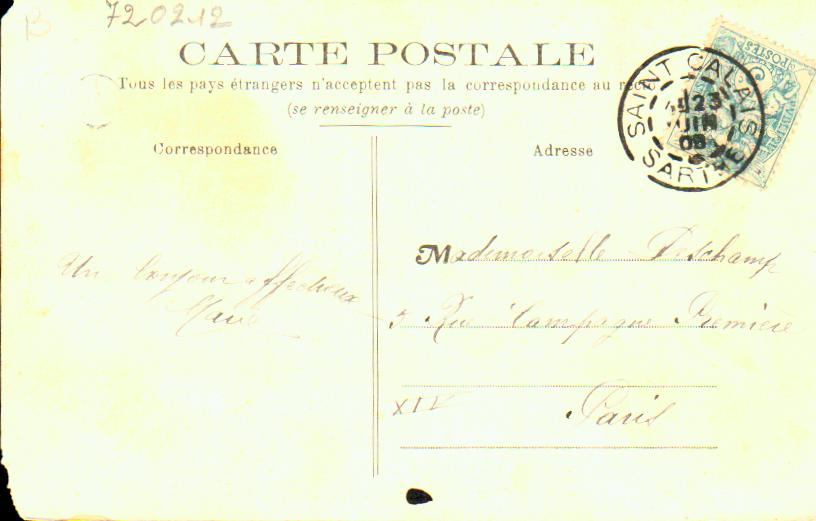 B
720212
CARTE POSTALE
Tous les pays étrangers n'acceptent pas la correspondance au recto
(se renseigner à la poste)
SAINT CALAIS
23
JUIN
SARTHE
POSTES
Correspondance
Adresse
Un bonjour affectueux
Marie
Mademoiselle Deschamp
3 Rue Campagne Première
XIV
Paris